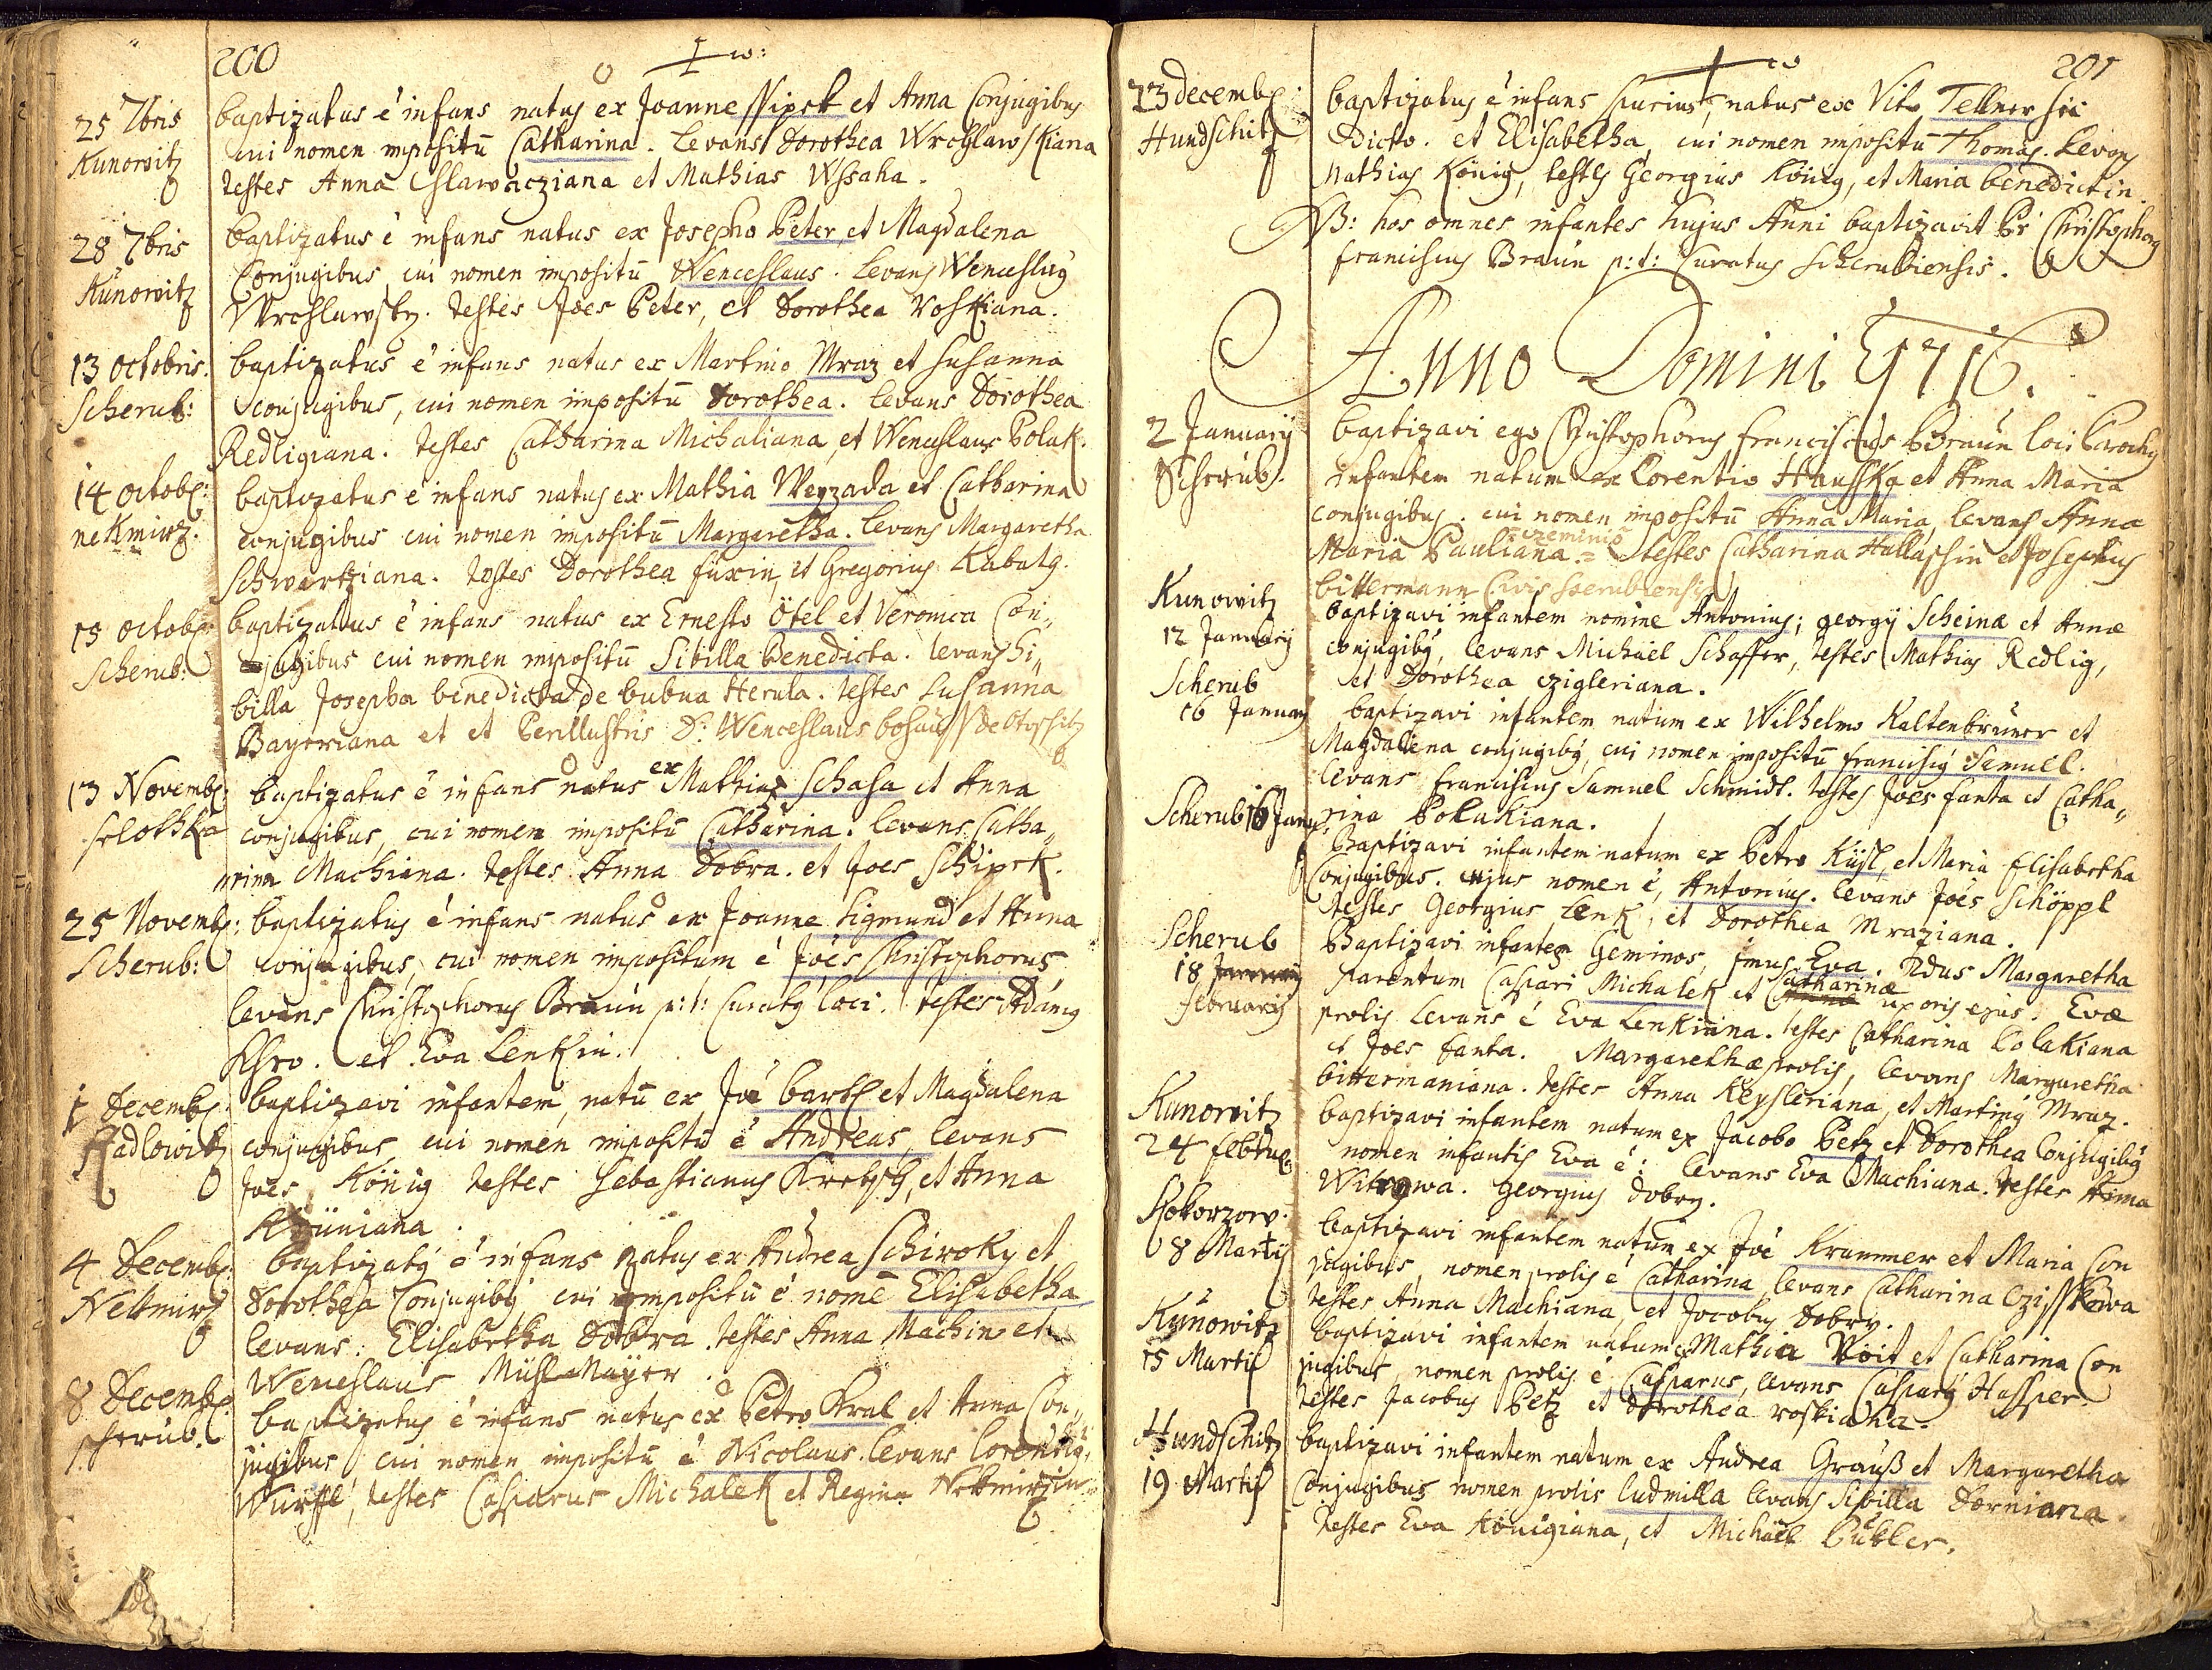 200
25 7bris
Kunowitz
baptizatus é infans natus ex Joanne Ssipek et Anna Conjugibus
cui nomen impositū Catharina. Levans Dorothea Wrchlawskiana
testes Anna Slawacziana et Mathias Wssaha.
28 7bris
Kunowitz
baptizatus é infans natus ex Josepho Peter et Magdalena
Conjugibus, cui nomen impositū Wenceslaus. Levans Wenceslaus
Wrchlawsky. testes Joes Peter, et Dorothea Voskiana.
13 Octobris.
Scherub:
baptizatus é infans natus ex Martino Mraz et Susanna
conjugibus, cui nomen impositū Dorothea. levans Dorothea
Redligiana. testes Catharina Michaliana, et Wenceslaus Polak.
14 Octob:
nekmirz.
baptizatus é infans natus ex Mathia Weyzada et Catharina
conjugibus cui nomen impositū Margaretha. levans Margaretha
Schwartziana. testes Dorothea fuxin, et Gregorius Kabatg.
15 Octob:
Scherub:
baptizatus é infans natus ex Ernesto Ötel et Veronica Con„
jugibus cui nomen impositū Sibilla Benedicta. levans Si„
billa Josepha benedicta de bubna Herula. testes Susanna
Bayeriana et et Perillustris D: Wenceslaus
13 Novemb:
slothka
baptizatus é infans natus ex Mathia Schasa et Anna
conjugibus, cui nomen impositū Catharina. levans Catha„
rina Machiana. testes Anna Dobra. et Joes Schipek.
25 Novemb:
Scherub:
baptizatus é infans natus ex Joanne Sigmund et Anna
conjugibus, cui nomen impositum é Joës Christophorus
levans Christophorus Braun p:t: Curatus loci. testes Adamus
et Eva Lenkin.
1 Decemb:
Radlowitz
baptizavi infantem, natū ex Joë bartl et Magdalena
conjugibus, cui nomen impositū é Andreas, levans
Joës König testes Sebastianus Kretzsch, et Anna
4 Decemb:
Nekmirz
baptizatus é infans natus ex Andrea Schiroky et
Dorothea Conjugibus, cui impositū é nomē Elisabetha
levans: Elisabetha Dobra. testes Anna Machin et
Wenceslaus Mühl Mayer
8 Decemb:
scherub.
baptizatus é infans natus ex Petro Kral et Anna Con„
jugibus cui nomen impositū é Nicolaus. levans Lorentius
Würffl, testes Casparus Michalek et Regina
201
23 decemb:
Hundschitz
baptizatus é infans spurius, natus ex Vito Tellner sic
dicto. et Elisabetha, cui nomen impositū Thomas. levans
Mathias König, testes Georgius König, et Maria benedictin.
NB: hos omnes infantes hujus Anni baptizavit Pr Christophorus
franciscus Braun p:t: Curatus scherubiensis.
Anno Domini 1716.
2 January
Scherub.
baptizavi ego Christophorus franciscus Braun loci Parochus
infantem natum ex Lorentio Hausska et Anna Maria
conjugibus. cui nomen impositū Anna Maria, levans Anna
Maria Pauliana. testes Catharina Hallaschin et Josephus
bittermann Civis scerubiensis
Kunowitz
12 January
baptizavi infantem nomine Antonius; georgij Scheina et Annæ
conjugibus, levans Michael Schaffer, testes Mathias Redlig,
et Dorothea Czigleriana.
Scherub
16 January
baptizavi infantem natum ex Wilhelmo Kaltenbruner et
Magdalena conjugibus, cui nomen impositū franciscus Semuel.
levans franciscus Samuel Schmidt. testes Joes fanta et Catha„
rina Polakiana.
Scherub 16 Janu
Baptizavi infantem natum ex Petro Küsl, et Maria Elisabetha
Conjugibus. cujus nomen é, Antonius. levans Joës Schöppl
testes Georgius Lenk, et Dorothea Mraziana.
Scherub
18 January
february
Baptizavi infantes Geminos, imus Eva. 2dus Margaretha
Parentum Caspari Michalek et Catharinæ uxoris ejus. Evæ
prolis levans é Eva Lenkiana. testes Catharina Polakiana
et Joes fanta. Margarethæ prolis, levans Margaretha
bittermaniana. testes Anna Keysleriana, et Martinus Mraz.
Kunowitz
24 februa
baptizavi infantem natum ex Jacobo Petz et Dorothea Conjugibus
nomen infantis Eva é: levans Eva Machiana. testes Anna
Witowa. Georgius dobry.
8 Martij
baptizavi infantem natum ex Joë Krammer et Maria Con
jugibus, nomen prolis é Catharina, levans Catharina Czisskowa
testes Anna Machiana, et Jocobus dobry.
Kunowitz
15 Martij
baptizavi infantem natum ex Mathia Voit et Catharina Con
jugibus, nomen prolis é Casparus, levans Casparus Hassper.
testes Jacobus Petz et Dorothea voskiana.
Hundschitz
19 Martij
baptizavi infantem natum ex Andrea Grauß et Margaretha
Conjugibus nomen prolis ludmilla levans Sibilla Dorniana.
testes Eva Königiana, et Michael Bübler.